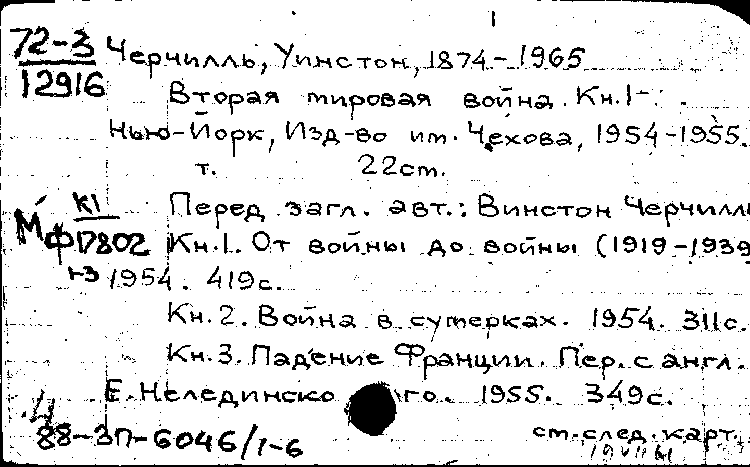 72-3
12916
Черчилль, Уинстон, 1874-1965
Вторая мировая война. Кн.1-
Нью-Йорк, Изд-во им. Чехова, 1954-1955.
т. 22см.
К1
Мф 17802
1-3
Перед загл. авт.: Винстон Черчилль
Кн.1. От войны до войны (1919-1939
1954. 419с.
Кн.2. Война в сумерках. 1954. 311с.
Кн.3. Падение Франции. Пер. с англ.
Е.Нелединского. 1955. 349с.
88-3П-6046/1-6
см.след.карт.